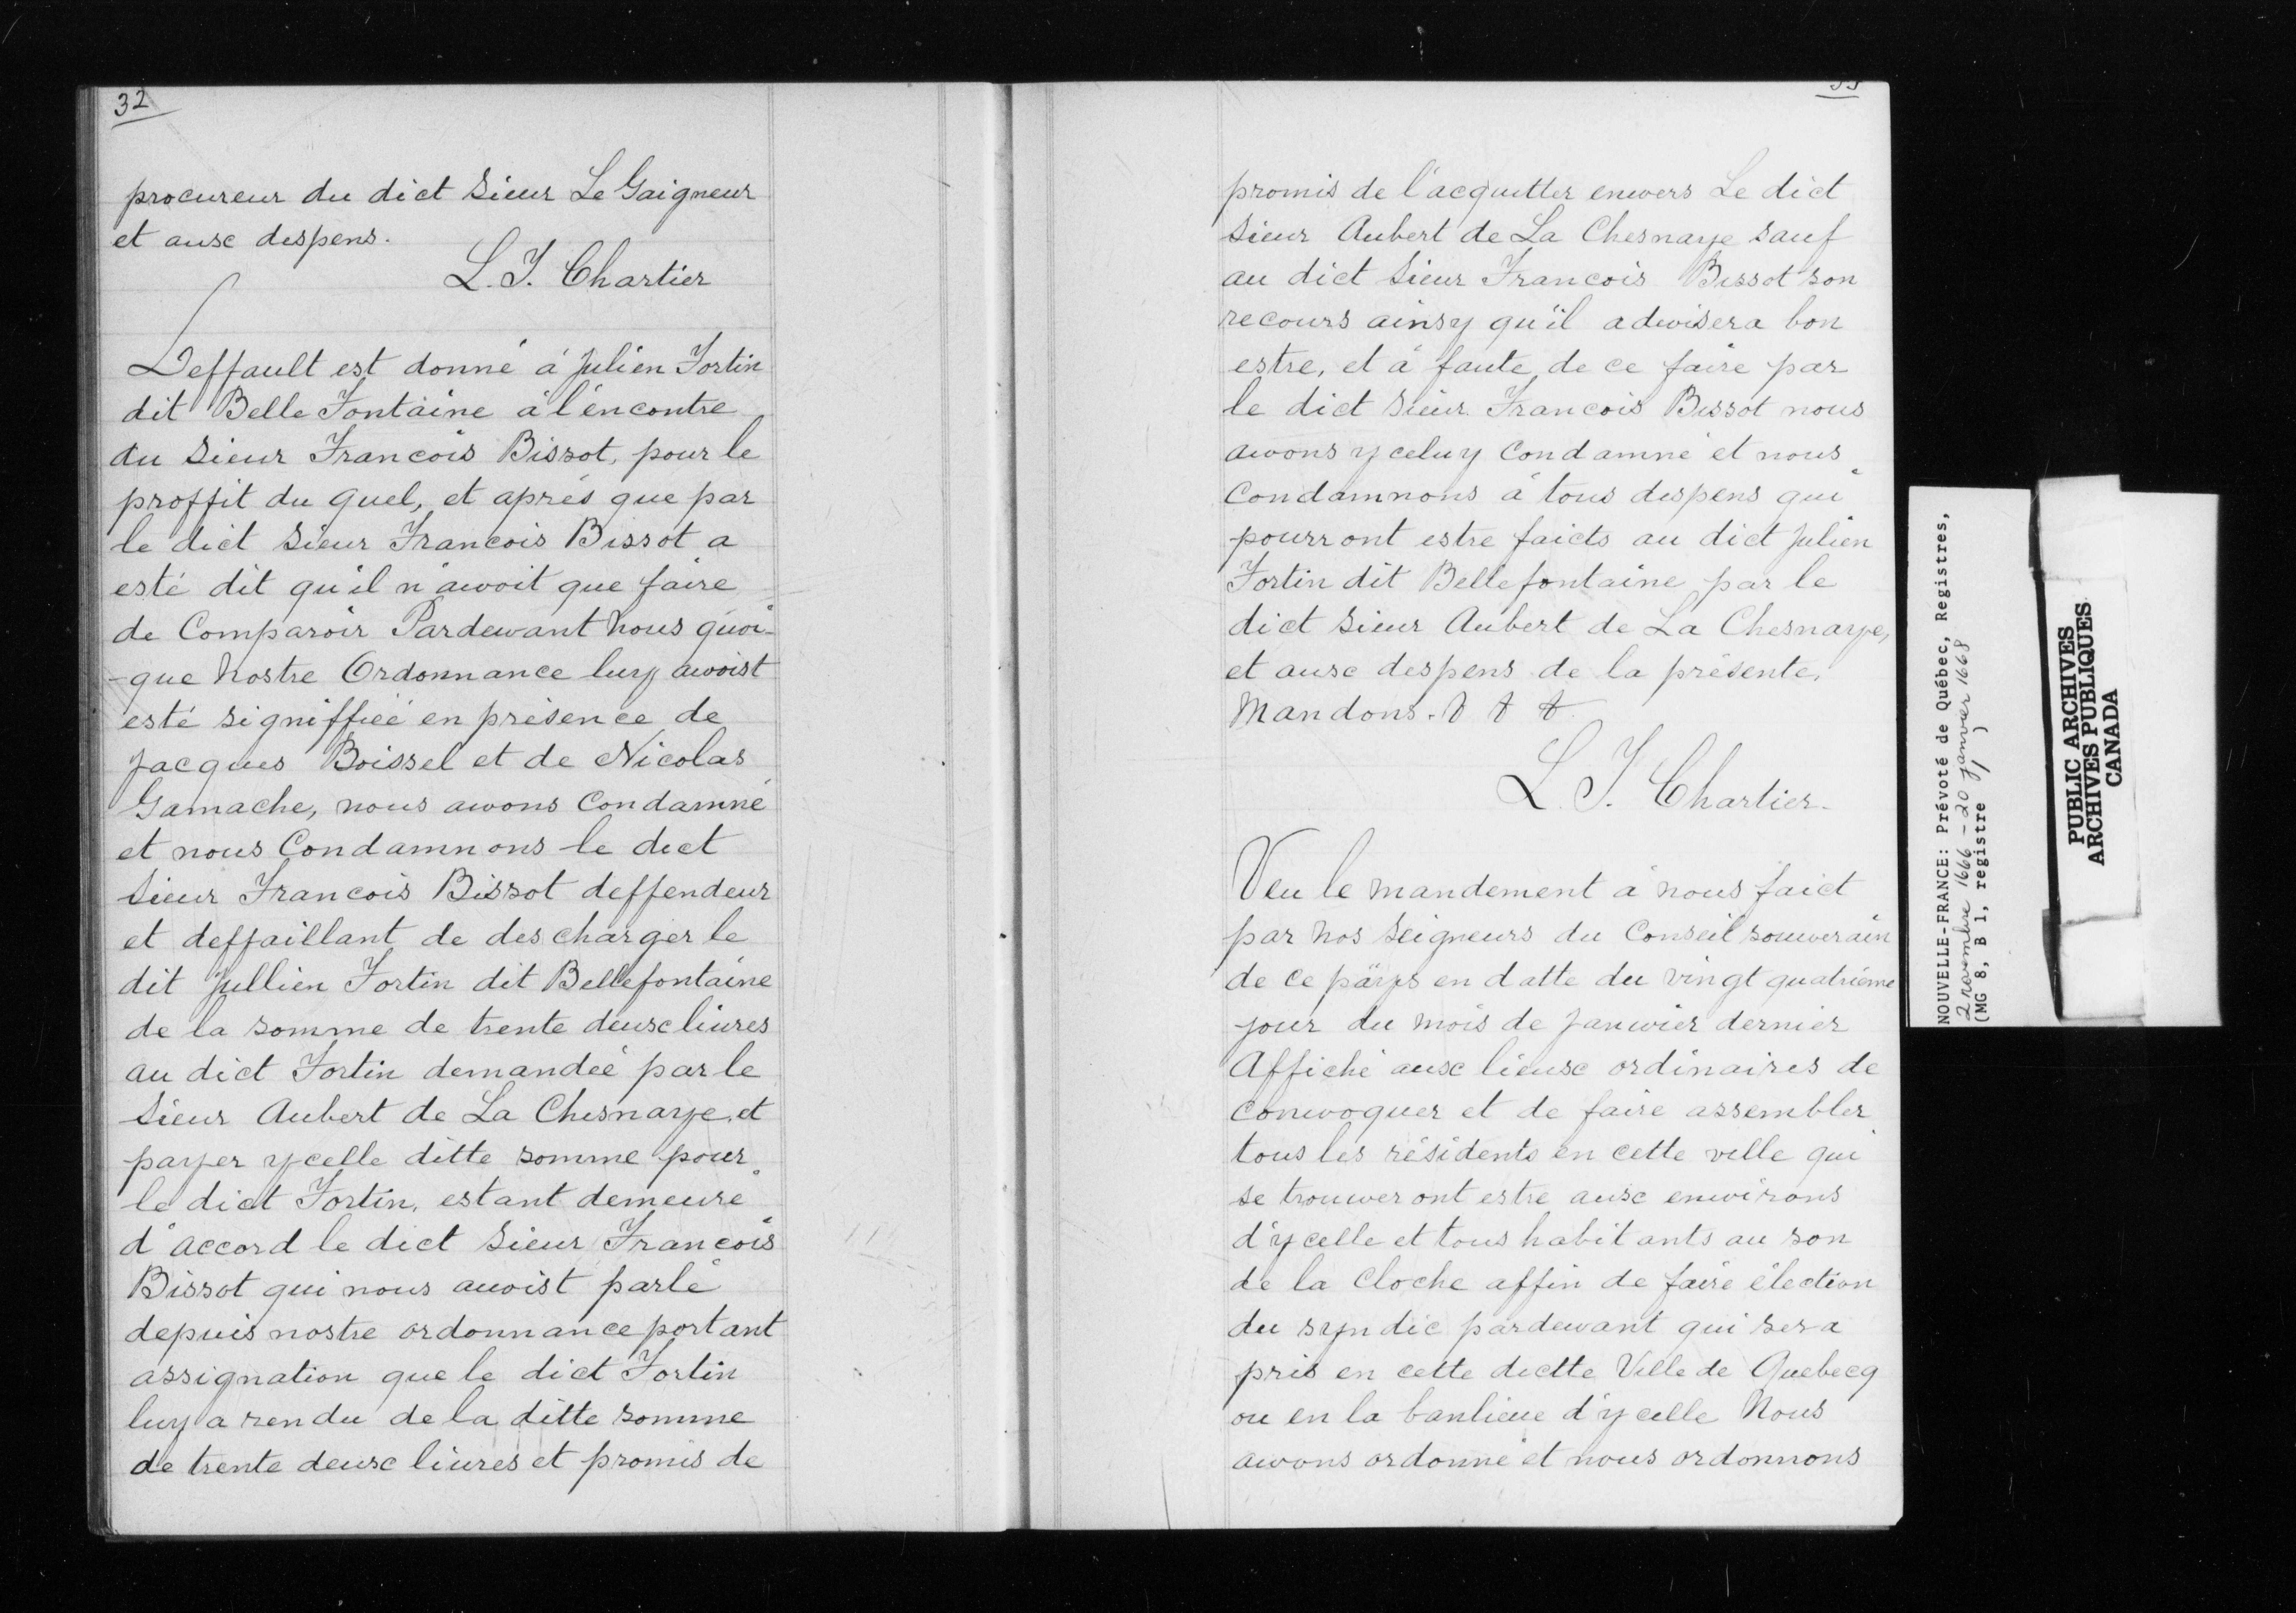 32
procureur du dict Sieur Le Gaigneur
et ausc despens.
L. T. Chartier
Deffault est donné à Julien Fortin
dit Belle Fontaine à l'encontre
du Sieur Francois Bissot, pour le
proffit du quel, et aprés que par
le dict Sieur Francois Bissot a
esté dit qu'il n'awoit que faire
de Comparoir Pardewant Nous quoi-
-que Nostre Ordonnance luy awoist
esté signiffieé en présence de
Jacques Boissel et de Nicolas
Gamache, nous awons Condamné
et nous Condamnons le dict
Sieur Francois Bissot deffendeur
et deffaillant de descharger le
dit Jullien Fortin dit Bellefontaine
de la somme de trente deusc liures
au dict Fortin demandeé par le
Sieur Aubert de La Chesnaye, et
payer ycelle ditte somme pour
le dict Fortin, estant demeuré
d'accord le dict Sieur Francois
Bissot qui nous auoist parlé
depuis nostre ordonnance portant
assignation que le dict Fortin
luy a rendu de la ditte somme
de trente deusc liures et promis de
promis de l'acquitter enwers Le dict
Sieur Aubert de La Chesnaye sauf
au dict Sieur Francois Bissot son
recours ainsy qu'il adwisera bon
estre, et à faute de ce faire par
le dict Sieur Francois Bissot nous
awons yceluy Condamné et nous
Condamnons à tous despens qui
pourront estre faicts au dict Julien
Fortin dit Bellefontaine par le
dict Sieur Aubert de La Chesnaye,
et ausc despens de la présente.
Mandons.
L. T. Chartier.
Veu le mandement à nous faict
par Nos Seigneurs du Conseil souwerain
de ce päys en datte du vingt quatriéme
jour du mois de Janwier dernier
Affiché ausc lieusc ordinaires de
conwoquer et de faire assembler
tous les résidents en cette ville qui
se trouweront estre ausc enwirons
d'ycelle et tous habitants au son
de la Cloche affin de faire élection
du syndic pardewant qui sera
pris en cette dictte Ville de Quebecq
ou en la banlieue d'ycelle Nous
awons ordonné et nous ordonnons
NOUVELLE-FRANCE: Prévoté de Québec, Registres,
2 novembre 1666 - 20 janvier 1668
(MG 8, B 1, registre 1)
PUBLIC ARCHIVES
ARCHIVES PUBLIQUES
CANADA